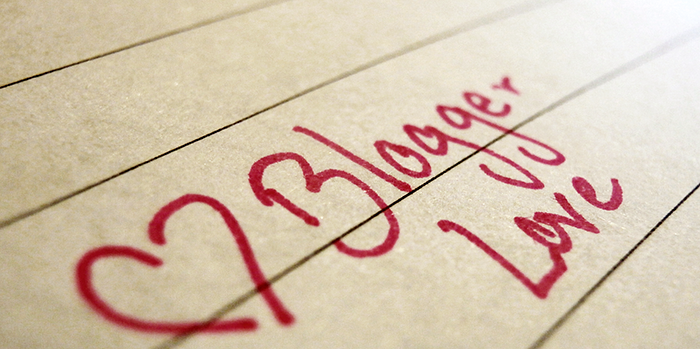 Blogger
Love